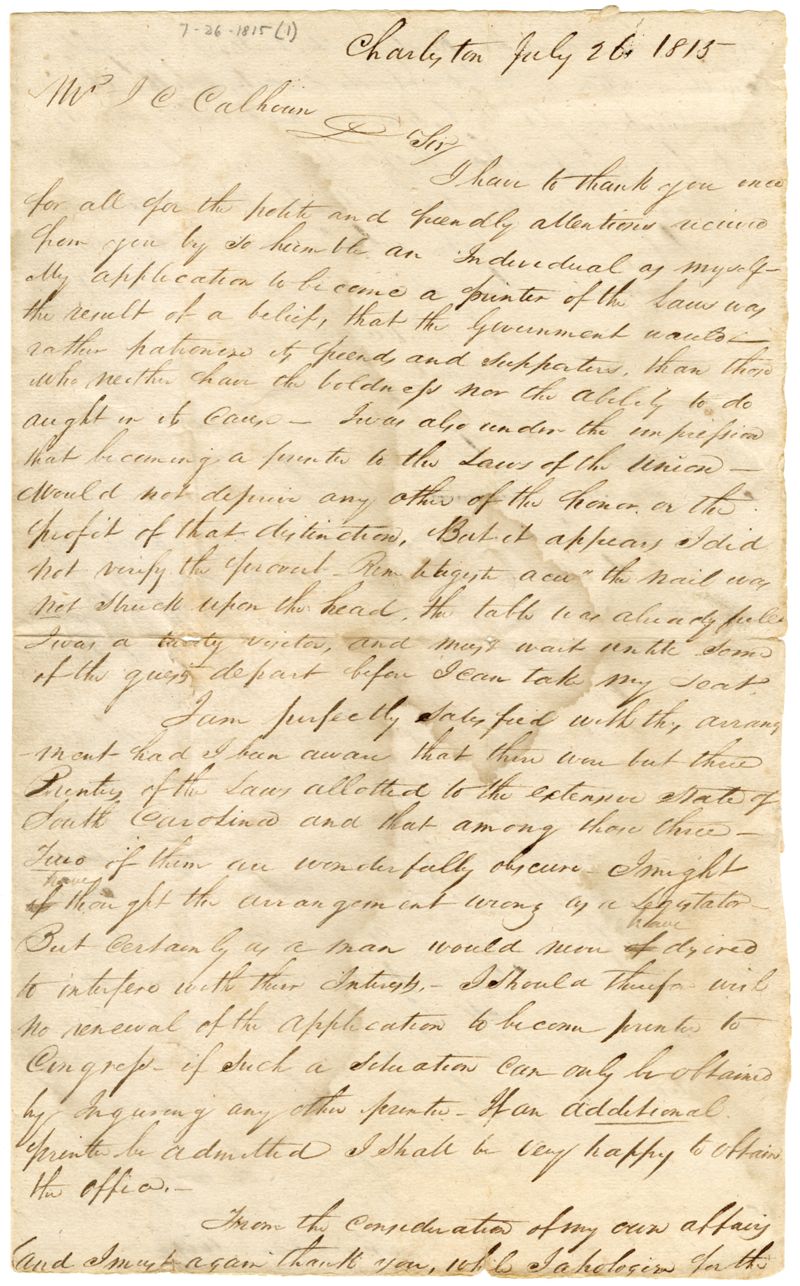 7-26-1815(1)
Charleston July 26 1815
Mr J C Calhoun
D Sir
I have to thank you once
for all for the polite and friendly attentions recieved
from you by so humble an Individual as myself-
My application to become a printer of the Laws was
the result of a belief, that the Government would
rather patronize its friends and supporters, than those
who neither have the boldness nor the ability to do
aught in its Cause - I was also under the impression
that becoming a printer to the Laws of the Union -
Would not deprive any other of the honor or the
profit of that distinction, But it appears I did
not verify the proverb - Rem tetigisti acu" the nail was
not struck upon the head, the table was already full
I was a tardy visitor, and must wait untill some
of the guests depart before I can take my seat.
I am perfectly satisfied with the arrang
-ment had I been aware that there were but three
Printers of the Laws allotted to the extensive State of
South Carolina and that among those three -
Two of them are wonderfully obscure - I might
have
thought the arrangement wrong as a Legislator -
have
But certainly as a man would never desired
to interfere with their Interests. - I should therefore wish
no renewal of the application to become printer to
Congress - if such a situation can only be obtained
by Injuring any other printer - If an additional
printer be admitted I shall be very happy to obtain
the office. -
From the consideration of my own affairs
(and I must again thank you, while I apologize for the